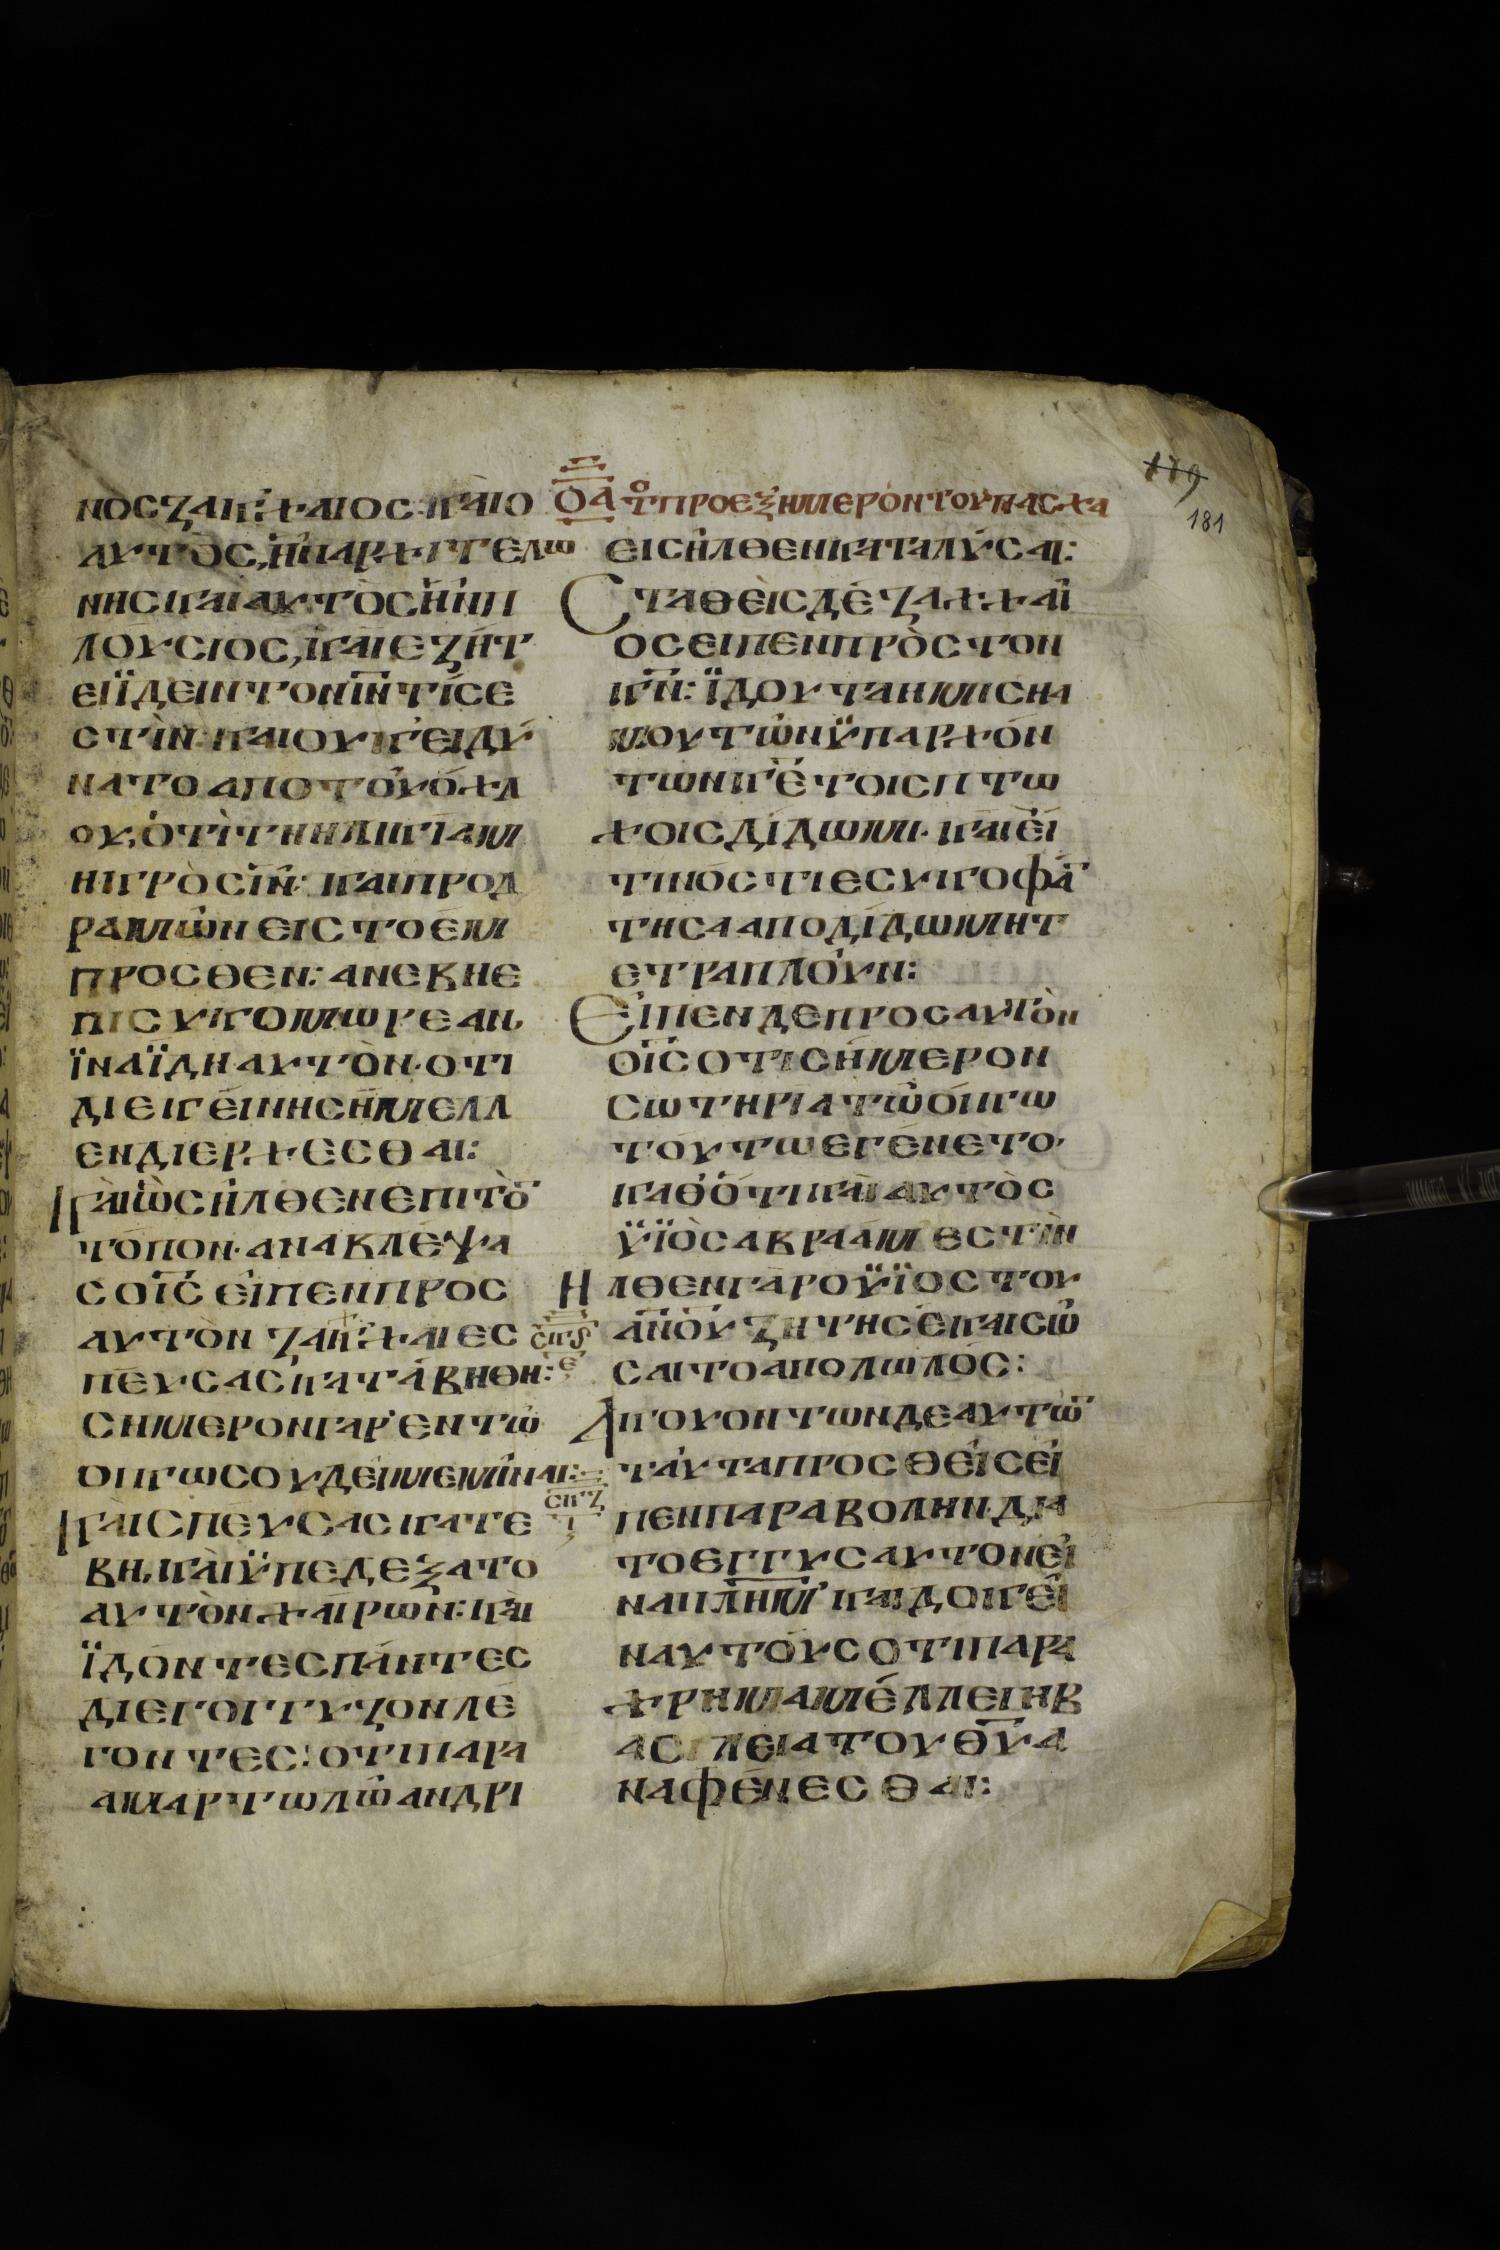 ΝΟΣ ΖΑΚΧΑΙΟΣ· ΚΑΙ Ο
ΑΥΤΟΣ, Ἠ ΠΑΡΧΙΤΕΛΩ
ΝΗΣ ΚΑΙ ΑΥΤΟΣ ΗΝ Π
ΛΟΥΣΙΟΣ, ΚΑΙ ΕΖΗΤ
ΕΙ ΪΔΕΙΝ ΤΟΝ ΙΝ ΤΙΣ Ε
ΣΤΙΝ· ΚΑΙ ΟΥΚ ΕΙΔΥ
ΝΑΤΟ ΑΠΟ ΤΟΥ ΟΧΛ
ΟΥ, ΟΤΙ ΤΗ ΗΛΙΚΙΑ Μ
ΗΚΡΟΣ ΙΝ: ΚΑΙ ΠΡΟΔ
ΡΑΜΩΝ ΕΙΣ ΤΟ ΕΜ
ΠΡΟΣΘΕΝ: ΑΝΕΒΗ Ε
ΠΙ ΣΥΚΟΜΩΡΕΑΝ,
ΪΝΑ ΪΔΗ ΑΥΤΟΝ· ΟΤΙ
ΔΙ ΕΚΕΙΝΗΣ ΗΜΕΛΛ
ΕΝ ΔΙΕΡΧΕΣΘΑΙ:
ΚΑΙ ΩΣ ΗΛΘΕΝ ΕΠΙ ΤΟ̄
ΤΟΠΟΝ· ΑΝΑΒΛΕΨΑ
Σ Ο ΙΣ ΕΙΠΕΝ ΠΡΟΣ
ΑΥΤΟΝ ΖΑΚΧΑΙΕ Σ
ΠΕΥΣΑΣ ΚΑΤΑΒΗΘΗ:
ΣΗΜΕΡΟΝ ΓΑΡ ΕΝ ΤΩ
ΟΙΚΩ ΣΟΥ ΔΕΙ ΜΕ ΜΙΝΑΙ:
ΚΑΙ ΣΠΕΥΣΑΣ ΚΑΤΕ
ΒΗ, ΚΑΙ ΫΠΕΔΕΞΑΤΟ
ΑΥΤΟΝ ΧΑΙΡΩΝ: ΚΑΙ
ΪΔΟΝΤΕΣ ΠΑΝΤΕΣ
ΔΙΕΓΟΓΓΥΖΟΝ ΛΕ
ΓΟΝΤΕΣ: ΟΤΙ ΠΑΡΑ
ΑΜΑΡΤΩΛΩ ΑΝΔΡΙ
ΣΠϚ
Ε
ΣΠΖ
Ι
ΟΑ Τ° ΠΡΟ ΕΞ ΗΜΕΡΟΝ ΤΟΥ ΠΑΣΧΑ
ΕΙΣΗΛΘΕΝ ΚΑΤΑΛΥΣΑΙ:
ΣΤΑΘΕΙΣ ΔΕ ΖΑΧΧΑΙ
ΟΣ ΕΙΠΕΝ ΠΡΟΣ ΤΟΝ
ΚΝ: ΪΔΟΥ ΤΑ ΗΜΙΣΗΑ
ΜΟΥ ΤΩΝ ΫΠΑΡΧΟΝ
ΤΩΝ ΚΕ ΤΟΙΣ ΠΤΩ
ΧΟΙΣ ΔΙΔΩΜΙ· ΚΑΙ ΕΙ
ΤΙΝΟΣ ΤΙ ΕΣΥΚΟΦᾹ
ΤΗΣΑ ΑΠΟΔΙΔΩΜΗ Τ
ΕΤΡΑΠΛΟΥΝ:
ΕΙΠΕΝ ΔΕ ΠΡΟΣ ΑΥΤΟΝ
Ο ΙΣ ΟΤΙ ΣΗΜΕΡΟΝ
ΣΩΤΗΡΙΑ ΤΩ ΟΙΚΩ
ΤΟΥΤΩ ΕΓΕΝΕΤΟ·
ΚΑΘΟΤΙ ΚΑΙ ΑΥΤΟΣ
ΫΪΟΣ ΑΒΡΑΑΜ ΕΣΤΙΝ
ΗΛΘΕΝ ΓΑΡ Ο ΫΪΟΣ ΤΟΥ
ΑΝΟΥ ΖΗΤΗΣΕ ΚΑΙ ΣΩ
ΣΑΙ ΤΟ ΑΠΟΛΩΛΟΣ:
ΑΚΟΥΟΝΤΩΝ ΔΕ ΑΥΤΩ̄
ΤΑΥΤΑ ΠΡΟΣΘΕΙΣ ΕΙ
ΠΕΝ ΠΑΡΑΒΟΛΗΝ· ΔΙΑ
ΤΟ ΕΓΓΥΣ ΑΥΤΟΝ ΕΙ
ΝΑΙ ΙΛΗΜ ΚΑΙ ΔΟΚΕΙ
Ν ΑΥΤΟΥΣ ΟΤΙ ΠΑΡΑ
ΧΡΗΜΑ ΜΕΛΛΕΙ Η Β
ΑΣΙΛΕΙΑ ΤΟΥ ΘΥ Α
ΝΑΦΕΝΕΣΘΑΙ:
179
181